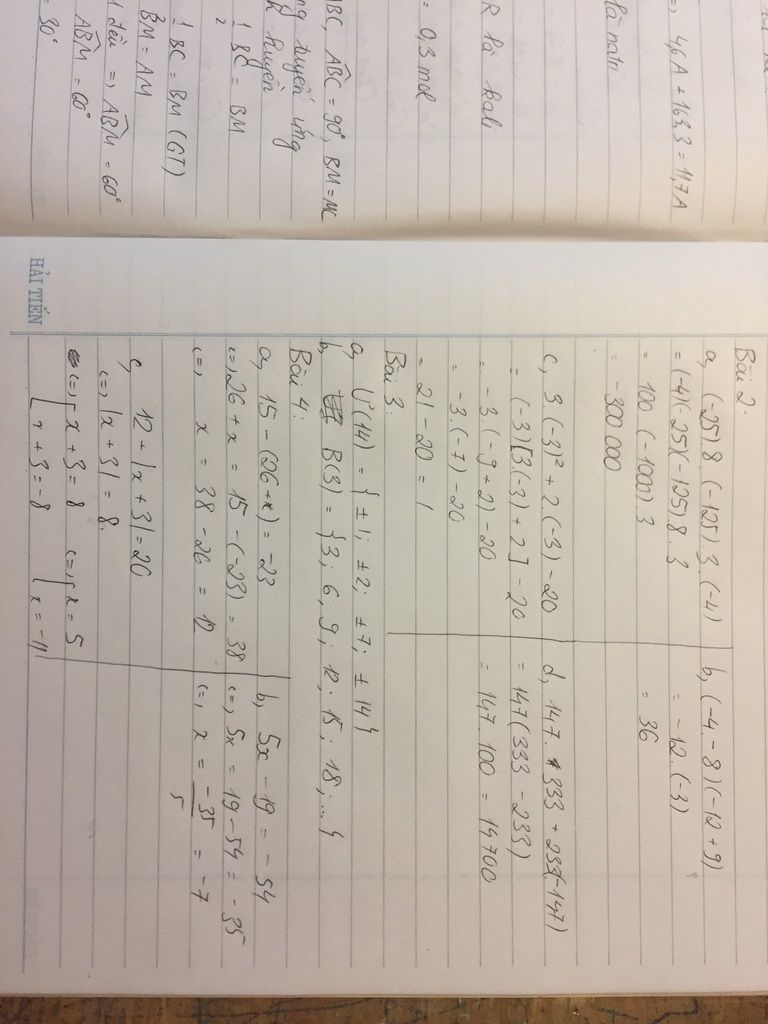 =, 4,6A + 163,3 = 11,7A
là natri
R là kali
= 0,3 mol
ABC, ABC = 90°, BM = MC
ng tuyến ứng
huyền
1/2 BC = BM
1/2 BC = BM (GT)
BM = AM
đều =, ABM = 60°
ABM = 60°
= 30°
Bài 2:
a, (-25).8.(-125).3.(-4)
= (-4)(-25)(-125).8.3
= 100.(-1000).3
= -300 000
b, (-4 - 8)(-12 + 9)
= -12.(-3)
= 36
c, 3.(-3)² + 2.(-3) - 20
= (-3)[3.(-3) + 2] - 20
= -3.(-9 + 2) - 20
= -3.(-7) - 20
= 21 - 20 = 1
d, 147.333 + 233(-147)
= 147(333 - 233)
= 147.100 = 14700
Bài 3:
a, Ư(14) = { ±1; ±2; ±7; ±14}
b, B(3) = {3; 6; 9; 12; 15; 18; ...}
Bài 4:
a, 15 - (26 + x) = -23
(=, 26 + x = 15 - (-23) = 38
(=, x = 38 - 26 = 12
b, 5x - 19 = -54
(=, 5x = 19 - 54 = -35
(=, x = -35/5 = -7
c, 12 + |x + 3| = 20
(=, |x + 3| = 8.
(=, [x + 3 = 8 (=, [x = 5
[x + 3 = -8 [x = -11
HẢI TIẾN